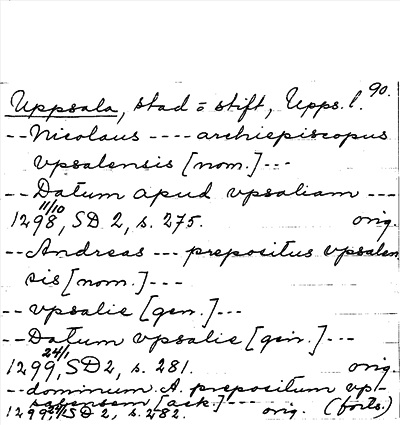 90.
Uppsala, stad o stift, Upps. l.
-- Nicolaus ---- archiepiscopus
vpsalensis [nom.] ---
-- Datum apud vpsaliam ---
11/10
1298, SD 2, s. 275. orig.
-- Andreas --- prepositus vpsalen
sis [nom.] ---
-- vpsalie [gen.] ---
-- Datum vpsalie [gen.] ---
24/1
1299, SD 2, s. 281. orig.
-- dominum A. prepositum vpl-
salensem [ack.] ---
1299, SD 2, s. 282. orig. (forts.)